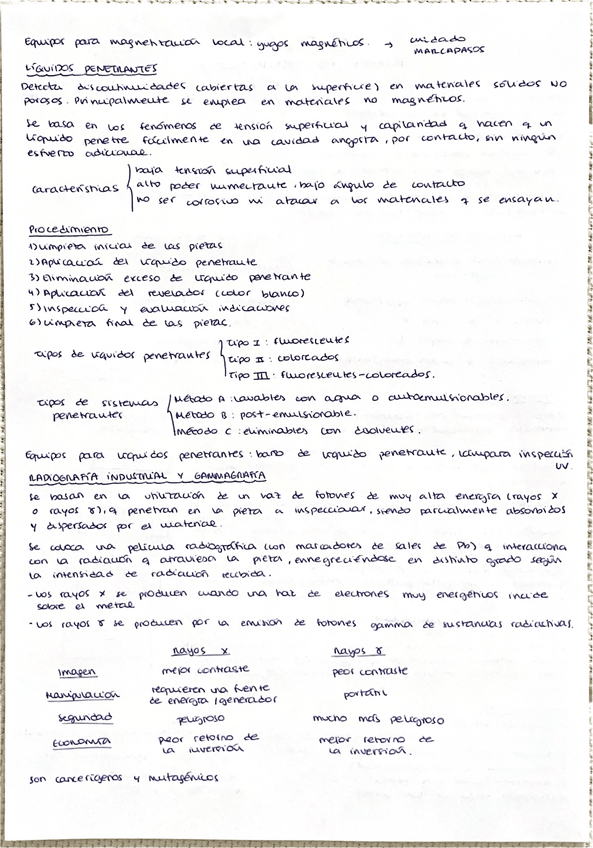 Equipos para magnetización local: yugos magnéticos. → cuidado
MARCAPASOS
LÍQUIDOS PENETRANTES
Detecta discontinuidades (abiertas a la superficie) en materiales sólidos NO
porosos. Principalmente se emplea en materiales no magnéticos.
Se basa en los fenómenos de tensión superficial y capilaridad q hacen q un
líquido penetre fácilmente en una cavidad angosta, por contacto, sin ningún
esfuerzo adicional.
características
baja tensión superficial
alto poder humectante, bajo ángulo de contacto
no ser corrosivo ni atacar a los materiales q se ensayan.
Procedimiento
1) Limpieza inicial de las piezas
2) Aplicación del líquido penetrante
3) Eliminación exceso de líquido penetrante
4) Aplicación del revelador (color blanco)
5) Inspección y evaluación indicaciones
6) Limpieza final de las piezas.
tipos de líquidos penetrantes
Tipo I: fluorescentes
Tipo II: coloreados
Tipo III: fluorescentes-coloreados.
tipos de sistemas
penetrantes
Método A: lavables con agua o autoemulsionables.
Método B: post-emulsionable.
Método C: eliminables con disolventes.
Equipos para líquidos penetrantes: baño de líquido penetrante, lámpara inspección
UV.
RADIOGRAFÍA INDUSTRIAL Y GAMMAGRAFÍA
Se basan en la utilización de un haz de fotones de muy alta energía (rayos X
o rayos γ), q penetran en la pieza a inspeccionar, siendo parcialmente absorbidos
y dispersados por el material.
Se coloca una película radiográfica (con marcadores de sales de Pb) q interacciona
con la radiación q atraviesa la pieza, ennegreciéndose en distinto grado según
la intensidad de radiación recibida.
- Los rayos X se producen cuando una haz de electrones muy energéticos incide
sobre el metal
- Los rayos γ se producen por la emisión de fotones gamma de sustancias radiactivas.
Rayos X Rayos γ
Imagen mejor contraste peor contraste
Manipulación requieren una fuente de energía/generador portátil
Seguridad peligroso mucho más peligroso
Economía peor retorno de la inversión mejor retorno de la inversión.
Son cancerígenos y mutagénicos